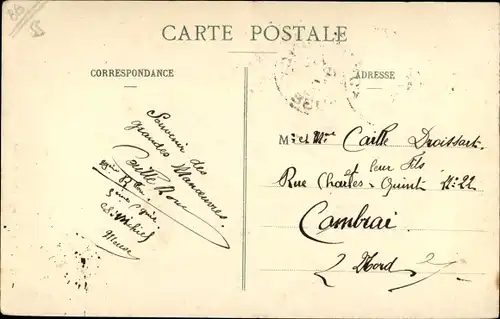 86
CARTE POSTALE
CORRESPONDANCE
ADRESSE
Souvenir des
grandes Manœuvres.
Caille
5ème Cgnie
St Mihiel
Meuse
Mr et Mme Caille Droissart
et leur Fils
Rue Charles-Quint No 22
Cambrai
(Nord)